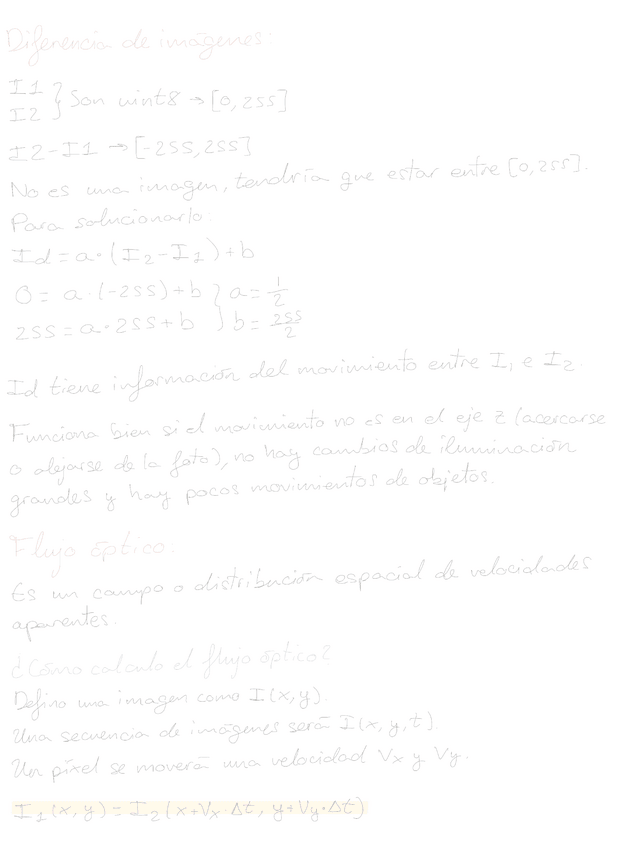 Diferencia de imágenes:
I1
I2 } Son uint8 → [0,255]
I2-I1 → [-255,255]
No es una imagen, tendría que estar entre [0,255].
Para solucionarlo:
Id = a·(I₂-I₁)+b
0 = a·(-255)+b } a = 1/2
255 = a·255+b } b = 255/2
Id tiene información del movimiento entre I₁ e I₂.
Funciona bien si el movimiento no es en el eje z (acercarse
o alejarse de la foto), no hay cambios de iluminación
grandes y hay pocos movimientos de objetos.
Flujo óptico:
Es un campo o distribución espacial de velocidades
aparentes.
¿Cómo calculo el flujo óptico?
Defino una imagen como I(x,y).
Una secuencia de imágenes será I(x,y,t)
Un píxel se moverá una velocidad Vx y Vy.
I₁(x,y) = I₂(x+Vx·Δt, y+Vy·Δt)